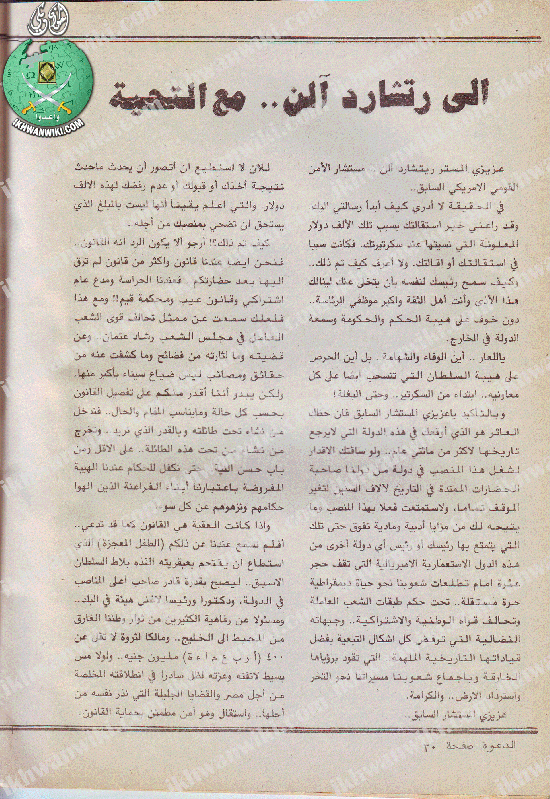 الى رتشارد آلن.. مع التحية
عزيزي المستر ريتشارد آلن.. مستشار الأمن
القومي الامريكي السابق..
في الحقيقة لا أدري كيف أبدأ رسالتي اليك
وقد راعني خبر استقالتك بسبب تلك الألف دولار
الملعونة التي نسيتها عند سكرتيرتك.. فكانت سببا
في استقالتك أو اقالتك.. ولا أعرف كيف تم ذلك..
وكيف سمح رئيسك لنفسه بأن يتخلى عنك لينالك
هذا الأذى وأنت أهل الثقة واكبر موظفي الرئاسة..
دون خوف على هيبة الحكم والحكومة وسمعة
الدولة في الخارج.
ياللعار.. أين الوفاء والشهامة.. بل أين الحرص
على هيبة السلطان التي تنسحب ايضا على كل
معاونيه.. ابتداء من السكرتير.. وحتى البغلة!
وبالتأكيد ياعزيزي المستشار السابق فان حظك
العاثر هو الذي أوقعك في هذه الدولة التي لايرجع
تاريخها لاكثر من مائتي عام.. ولو ساقتك الاقدار
لشغل هذا المنصب في دولة من دولنا صاحبة
الحضارات الممتدة في التاريخ لآلاف السنين لتغير
الموقف تماما.. ولاستمتعت فعلا بهذا المنصب وما
يتيحه لك من مزايا أدبية ومادية تفوق حتى تلك
التي يتمتع بها رئيسك أو رئيس أي دولة أخرى من
هذه الدول الاستعمارية الامبريالية التي تقف حجر
عثرة امام تطلعات شعوبنا نحو حياة ديمقراطية
حرة مستقلة.. تحت حكم طبقات الشعب العاملة
وتحالف قواه الوطنية والاشتراكية.. وجبهاته
النضالية التي ترفض كل اشكال التبعية بفضل
قياداتها التاريخية الملهمة التي تقود برؤياها
الخارقة وباجماع شعوبنا مسيراتنا نحو التحرر
واسترداد الارض.. والكرامة.
عزيزي المستشار السابق.
للآن لا استطيع أن أتصور أن يحدث ماحدث
نتيجة أخذك أو قبولك أو عدم رفضك لهذه الالف
دولار والتي اعلم يقينا أنها ليست بالمبلغ الذي
يستحق أن تضحي بمنصبك من أجله..
كيف تم ذلك؟! أرجو ألا يكون الرد انه القانون..
فنحن ايضا عندنا قانون واكثر من قانون لم ترق
اليها بعد حضارتكم فعندنا الحراسة ومدع عام
اشتراكي وقانون عيب ومحكمة قيم!! ومع هذا
فلعلك سمعت عن ممثل تحالف قوى الشعب
العامل في مجلس الشعب رشاد عثمان.. وعن
قضيته وما أثارته من فضائح وما كشفت عنه من
حقائق ومصائب ليس ضياع سيناء بأكبر منها.
ولكن يبدو أننا أقدر منكم على تفصيل القانون
بحسب كل حالة ومايناسب المقام والحال.. فندخل
من نشاء تحت طائلته وبالقدر الذي نريد.. ونخرج
من نشاء من تحت هذه الطائلة.. على الاقل من
باب حسن النية.. حتى نكفل للحكام عندنا الهيبة
المفروضة باعتبارنا أبناء الفراعنة الذين الهوا
حكامهم ونزهوهم عن كل سوء.
واذا كانت العقبة هي القانون كما قد تدعي..
أفلم تسمع عندنا عن ذلكم (الطفل المعجزة) الذي
استطاع ان يقتحم بعبقريته الفذة بلاط السلطان
الاسبق.. ليصبح بقدرة قادر صاحب اعلى المناصب
في الدولة، ودكتورا ورئيسا لأعلى هيئة في البلد..
ومسئولا عن رفاهية الكثيرين من ثوار وطننا الغارق
من المحيط الى الخليج.. ومالكا لثروة لا تقل عن
٤٠٠ (أربعمائة) مليون جنيه.. ولولا مس
بسيط لانفه وعزته لظل سادرا في انطلاقته المخلصة
من أجل مصر والقضايا الجليلة التي نذر نفسه من
أجلها.. واستقال وهو آمن مطمئن بحماية القانون.
الدعوة صفحة ٣٠
IKHWANWIKI.COM